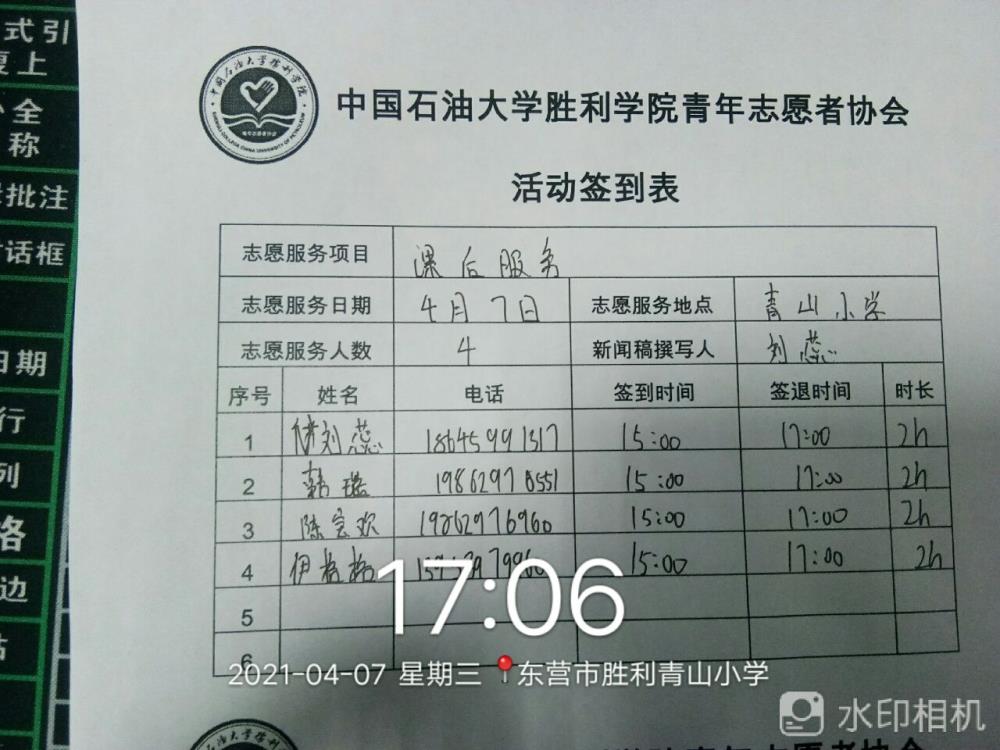 式引
复上
全
称
批注
话框
日期
行
列
格
边
中国石油大学胜利学院青年志愿者协会
活动签到表
志愿服务项目 课后服务
志愿服务日期 4月7日 志愿服务地点 青山小学
志愿服务人数 4 新闻稿撰写人 刘蕊
序号 姓名 电话 签到时间 签退时间 时长
1 刘蕊 18645991317 15:00 17:00 2h
2 韩瑶 15:00 17:00 2h
3 陈宝欢 19862976960 15:00 17:00 2h
4 伊格格 15:00 17:00 2h
5
6
17:06
2021-04-07 星期三 东营市胜利青山小学
水印相机